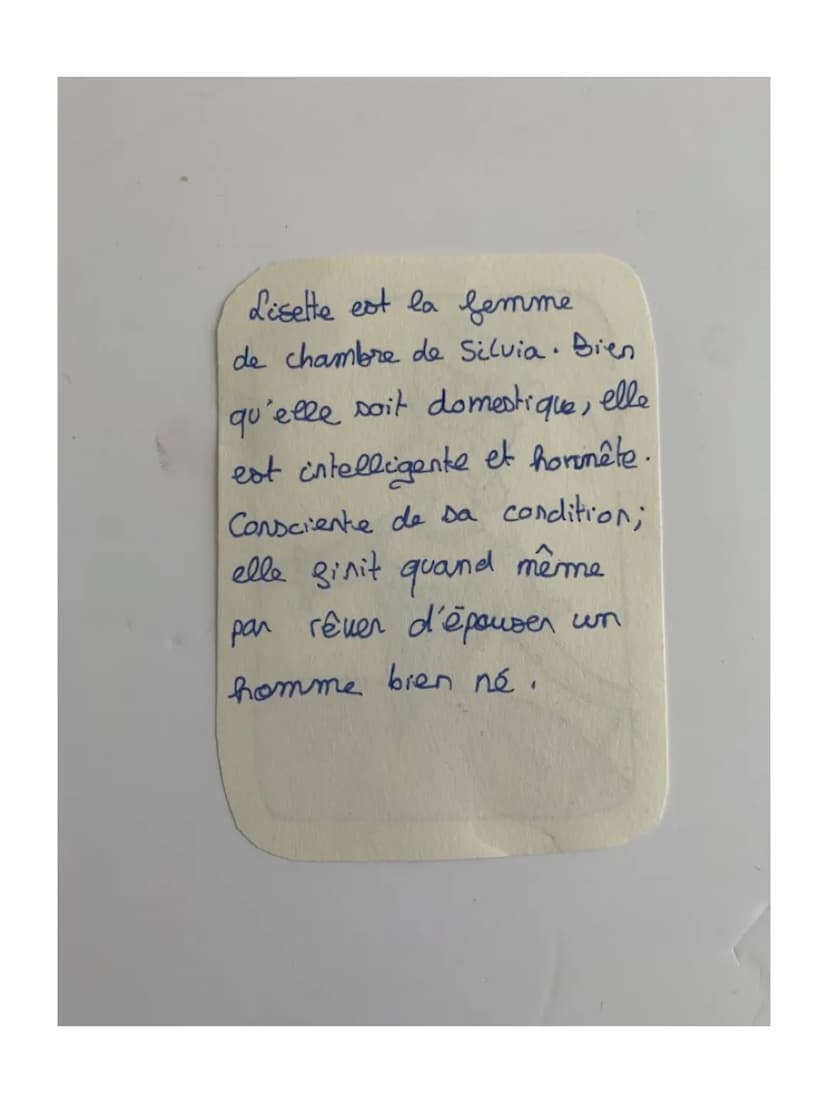 Lisette est la femme
de chambre de Silvia. Bien
qu'elle soit domestique, elle
est intelligente et honnête.
Consciente de sa condition;
elle finit quand même
par rêver d'épouser un
homme bien né.